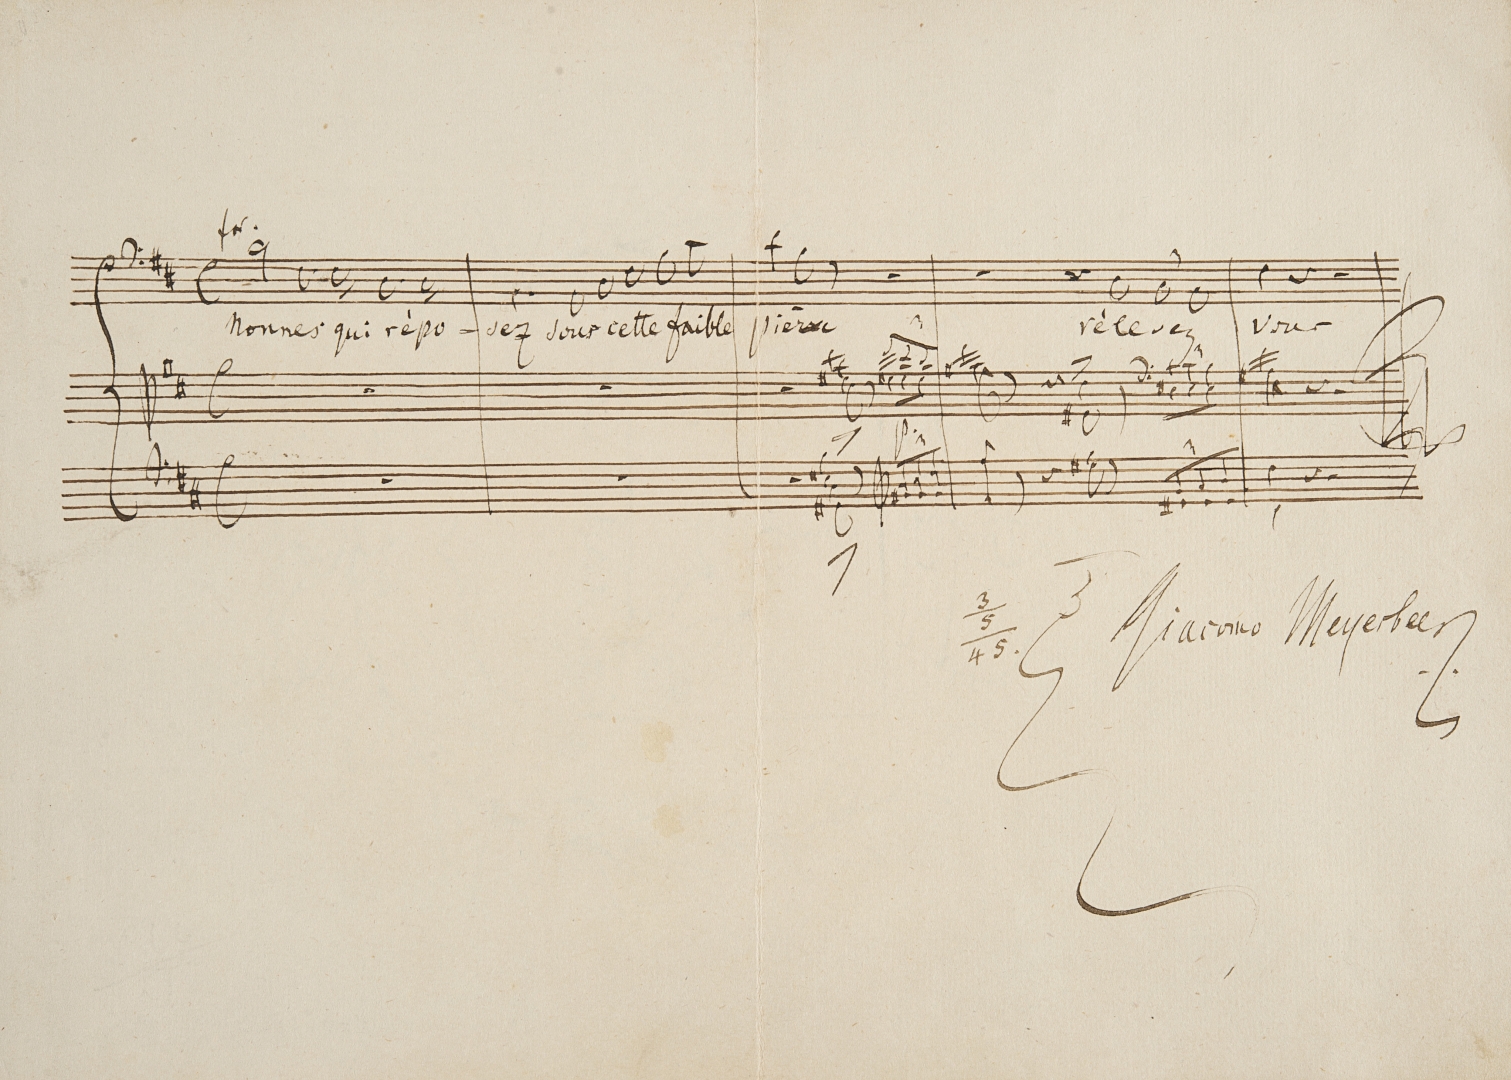 for.
Nonnes qui répo - sez sous cette faible pierre rélevez vous
3
3
3
3
3/5 45. Giacomo Meyerbeer